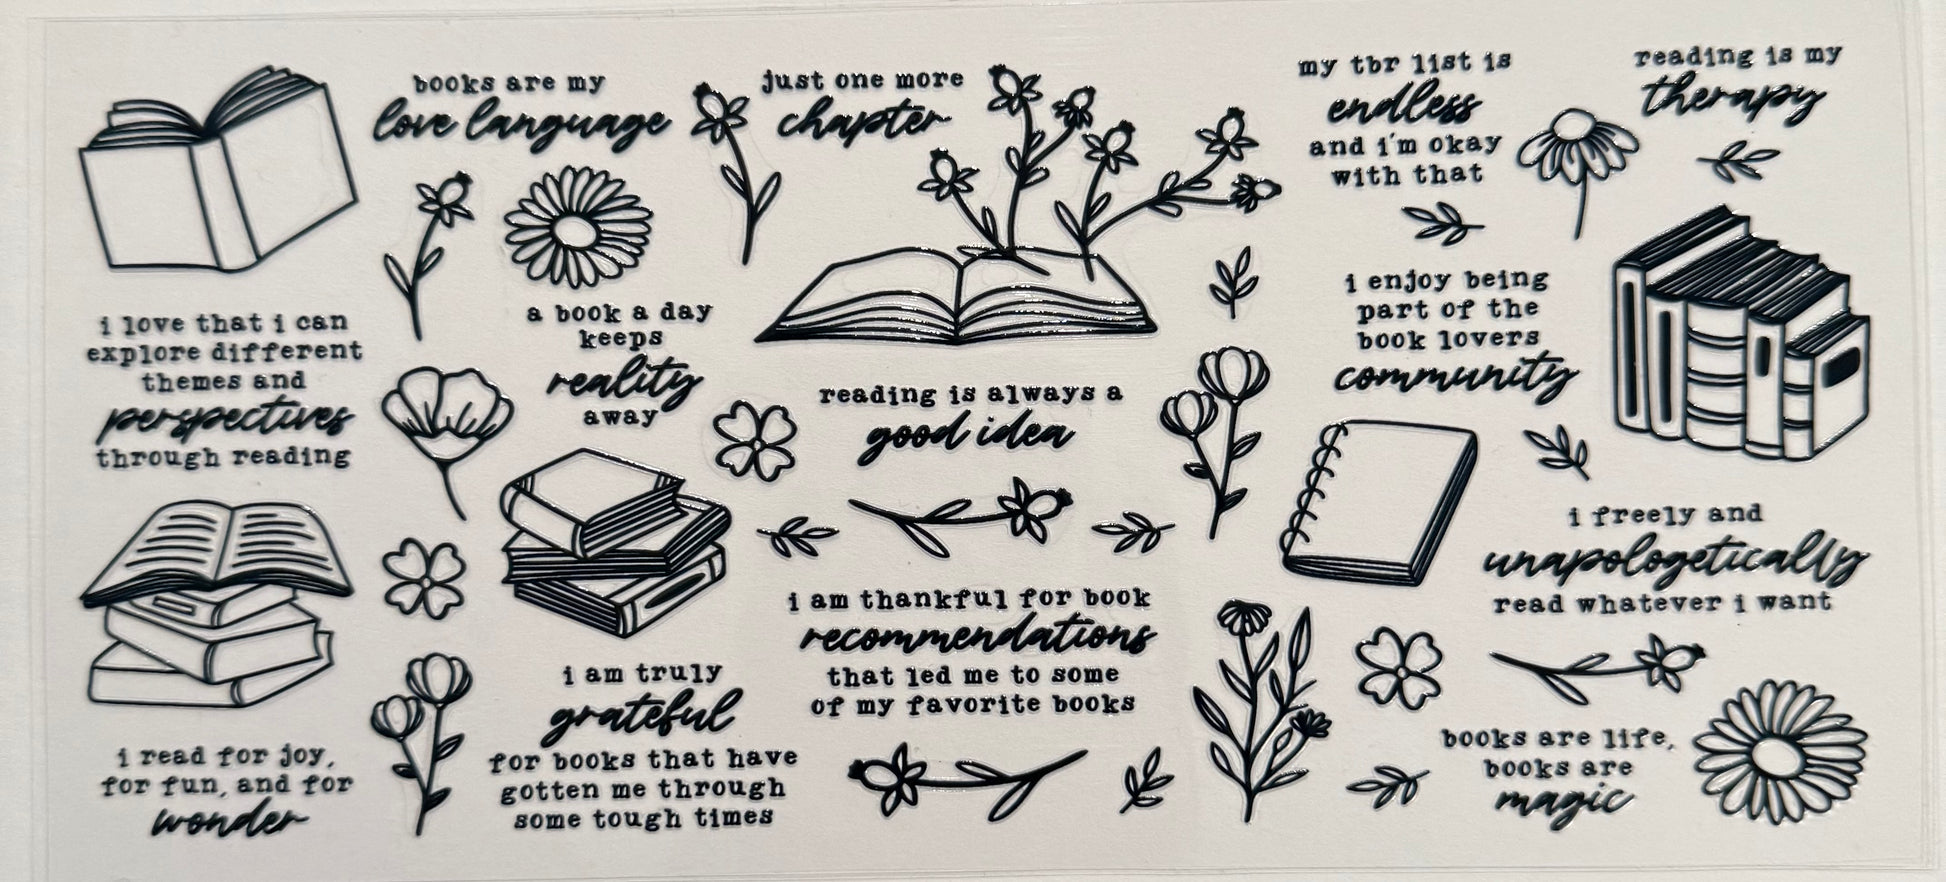 books are my
love language
just one more
chapter
my tbr list is
endless
and i'm okay
with that
reading is my
therapy
i love that i can
explore different
themes and
perspectives
through reading
a book a day
keeps
reality
away
reading is always a
good idea
i enjoy being
part of the
book lovers
community
i freely and
unapologetically
read whatever i want
i am thankful for book
recommendations
that led me to some
of my favorite books
i am truly
grateful
for books that have
gotten me through
some tough times
i read for joy,
for fun, and for
wonder
books are life,
books are
magic